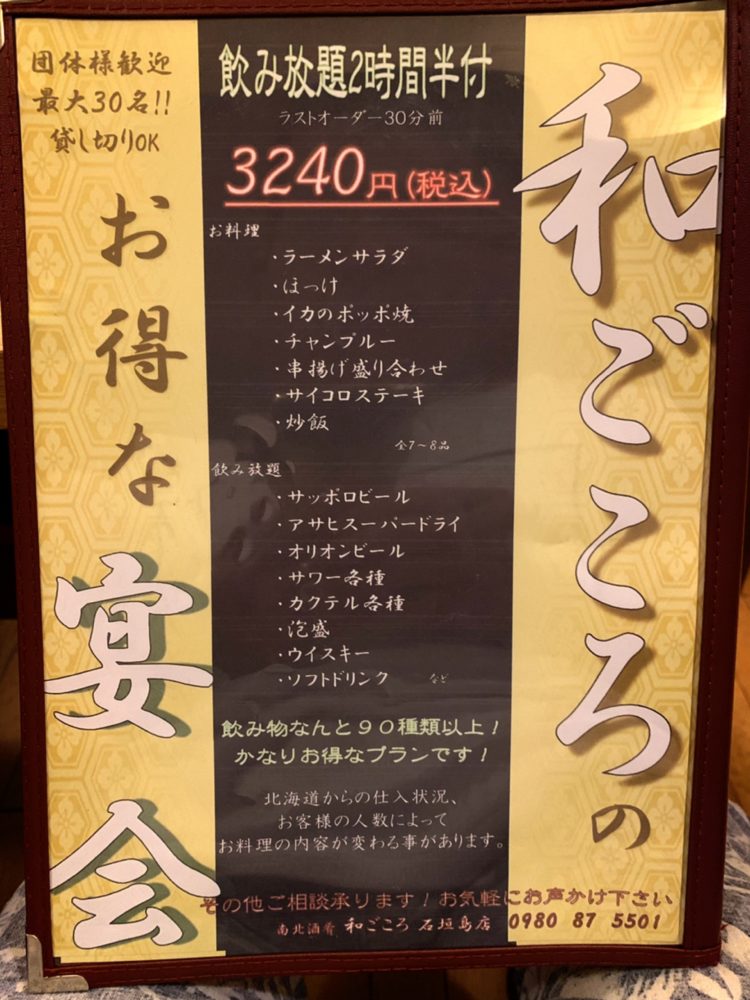 和ごころの
お得な
宴会
団体様歓迎
最大30名!!
貸し切りOK
飲み放題2時間半付
ラストオーダー30分前
3240円(税込)
お料理
・ラーメンサラダ
・ほっけ
・イカのポッポ焼
・チャンプルー
・串揚げ盛り合わせ
・サイコロステーキ
・炒飯
全7～8品
飲み放題
・サッポロビール
・アサヒスーパードライ
・オリオンビール
・サワー各種
・カクテル各種
・泡盛
・ウイスキー
・ソフトドリンク など
飲み物なんと90種類以上!
かなりお得なプランです!
北海道からの仕入状況、
お客様の人数によって
お料理の内容が変わる事があります。
その他ご相談承ります!お気軽にお声かけ下さい
南北酒肴 和ごころ 石垣島店 0980 87 5501